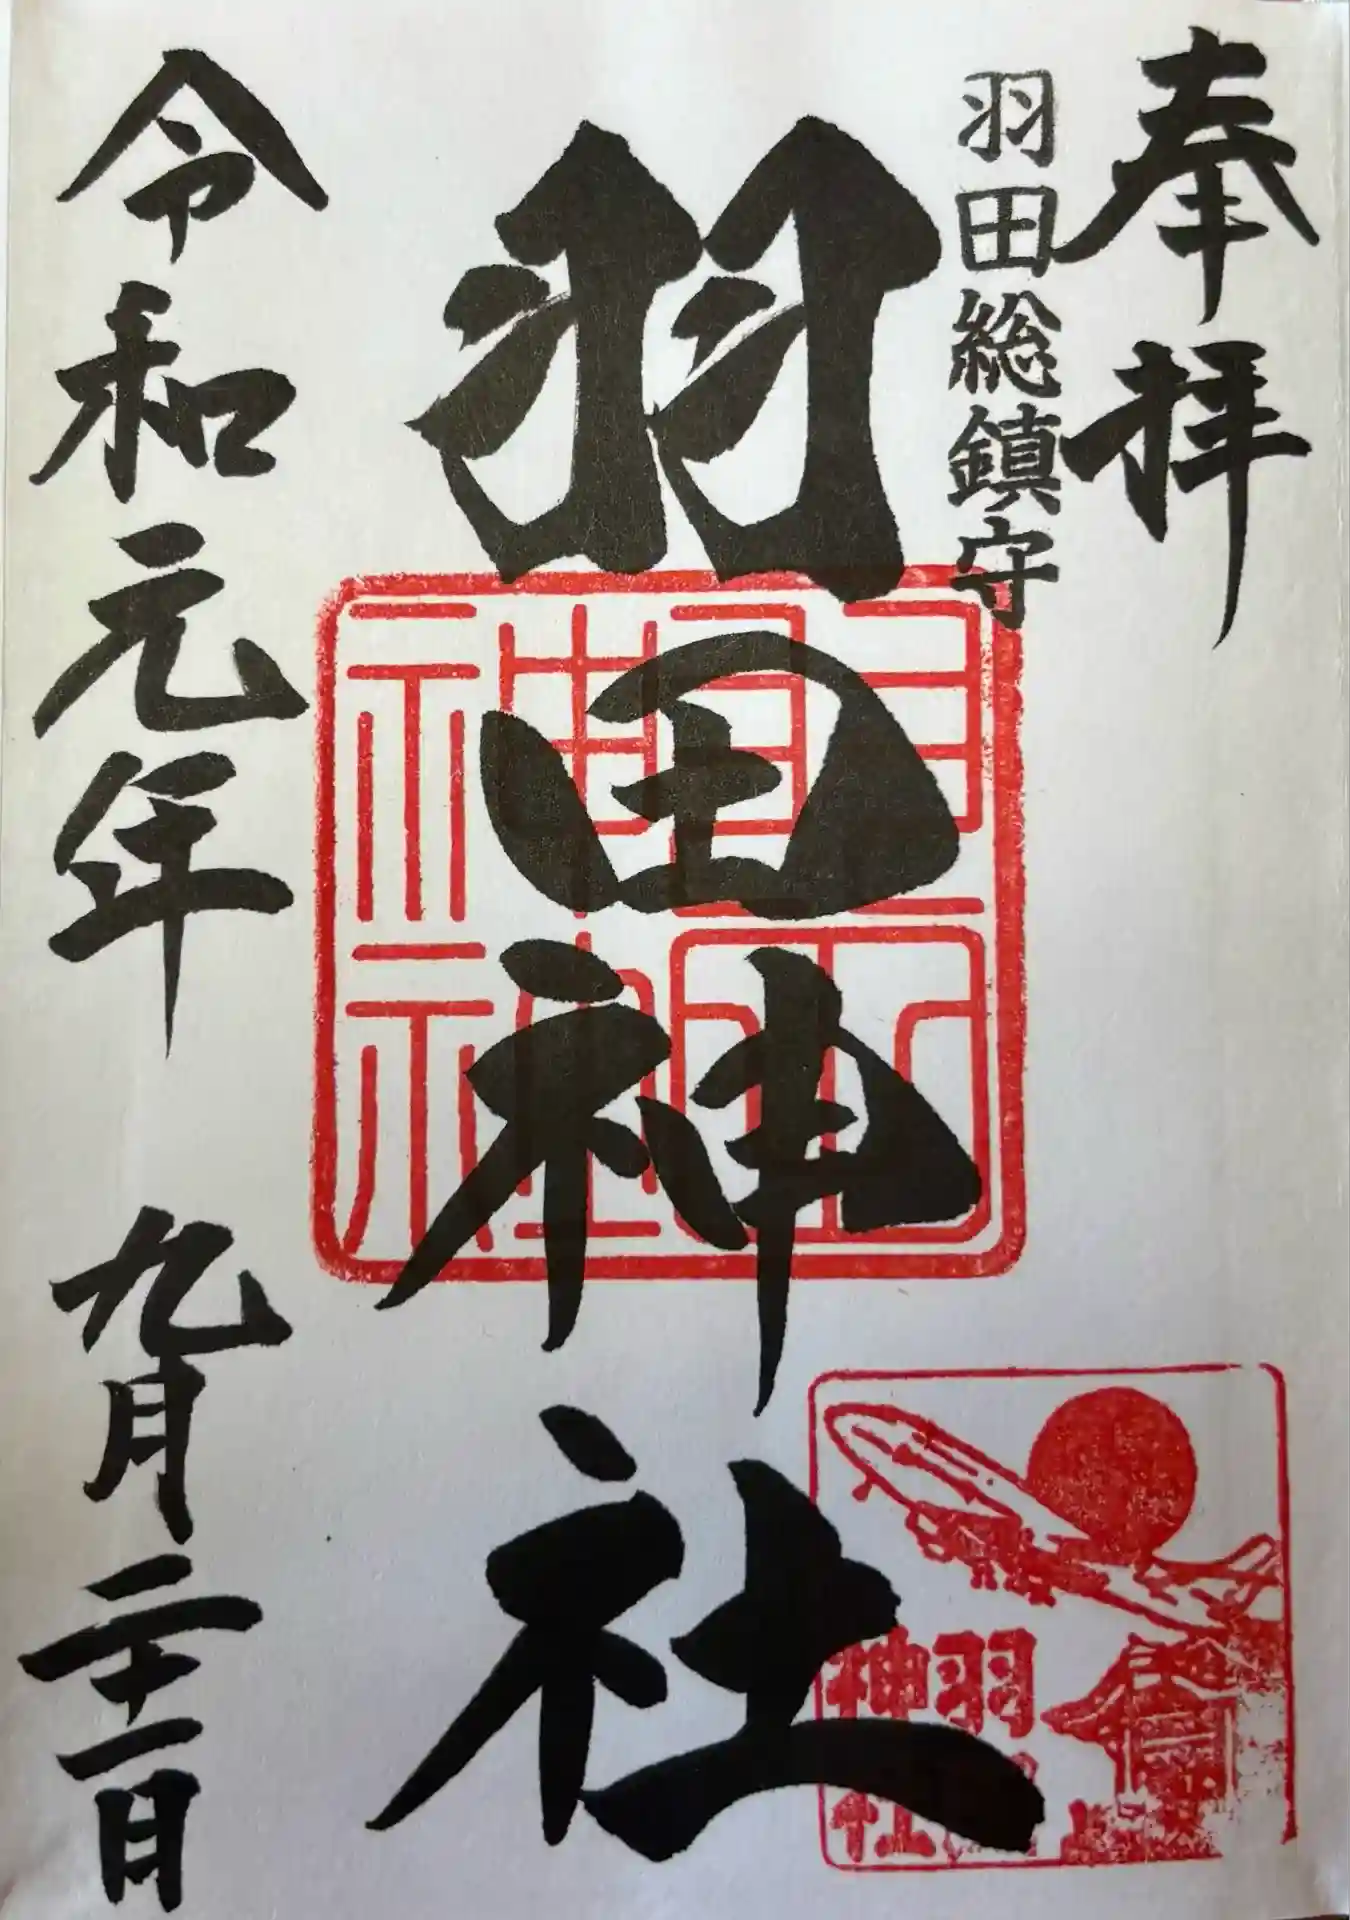 奉拝
羽田総鎮守
羽田神社
令和元年 九月二十一日
羽田
神社
羽
神社